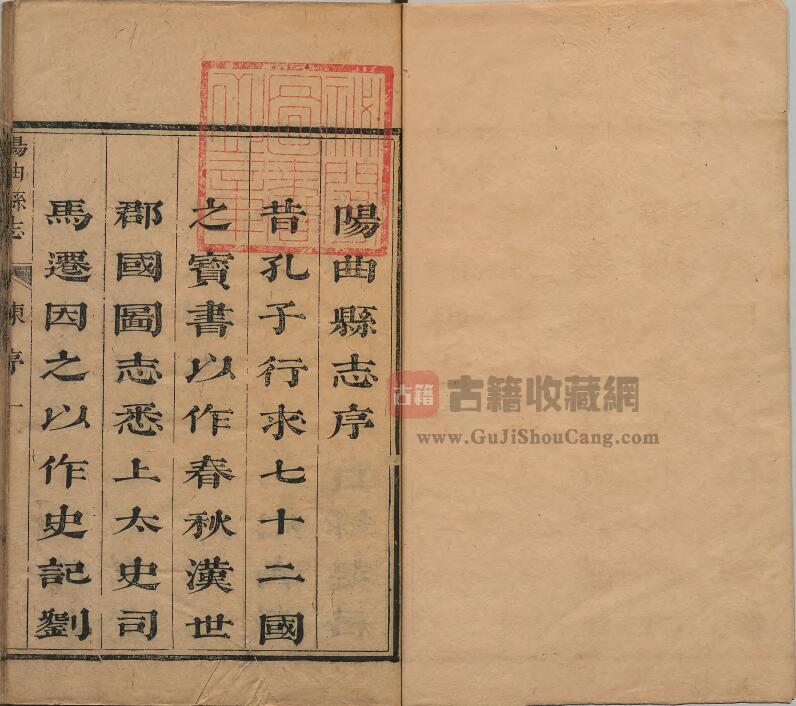 陽曲縣志序
昔孔子行求七十二國
之寶書以作春秋漢世
郡國圖志悉上太史司
馬遷因之以作史記劉
陽曲縣志 陳序 一
古籍 古籍收藏網
www.GuJiShouCang.com